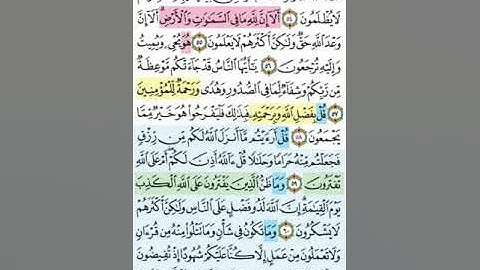 لَا يُظْلَمُونَ ٥٤ أَلَا إِنَّ لِلَّهِ مَا فِي السَّمَٰوَٰتِ وَالْأَرْضِ أَلَا إِنَّ
وَعْدَ اللَّهِ حَقٌّ وَلَٰكِنَّ أَكْثَرَهُمْ لَا يَعْلَمُونَ ٥٥ هُوَ يُحْيِ وَيُمِيتُ
وَإِلَيْهِ تُرْجَعُونَ ٥٦ يَٰأَيُّهَا النَّاسُ قَدْ جَاءَتْكُم مَّوْعِظَةٌ
مِّن رَّبِّكُمْ وَشِفَاءٌ لِّمَا فِي الصُّدُورِ وَهُدًى وَرَحْمَةٌ لِّلْمُؤْمِنِينَ
٥٧ قُلْ بِفَضْلِ اللَّهِ وَبِرَحْمَتِهِ فَبِذَٰلِكَ فَلْيَفْرَحُوا هُوَ خَيْرٌ مِّمَّا
يَجْمَعُونَ ٥٨ قُلْ أَرَءَيْتُم مَّا أَنزَلَ اللَّهُ لَكُم مِّن رِّزْقٍ
فَجَعَلْتُم مِّنْهُ حَرَامًا وَحَلَٰلًا قُلْ ءَاللَّهُ أَذِنَ لَكُمْ أَمْ عَلَى اللَّهِ
تَفْتَرُونَ ٥٩ وَمَا ظَنُّ الَّذِينَ يَفْتَرُونَ عَلَى اللَّهِ الْكَذِبَ
يَوْمَ الْقِيَٰمَةِ إِنَّ اللَّهَ لَذُو فَضْلٍ عَلَى النَّاسِ وَلَٰكِنَّ أَكْثَرَهُمْ
لَا يَشْكُرُونَ ٦٠ وَمَا تَكُونُ فِي شَأْنٍ وَمَا تَتْلُوا مِنْهُ مِن قُرْءَانٍ
وَلَا تَعْمَلُونَ مِنْ عَمَلٍ إِلَّا كُنَّا عَلَيْكُمْ شُهُودًا إِذْ تُفِيضُونَ